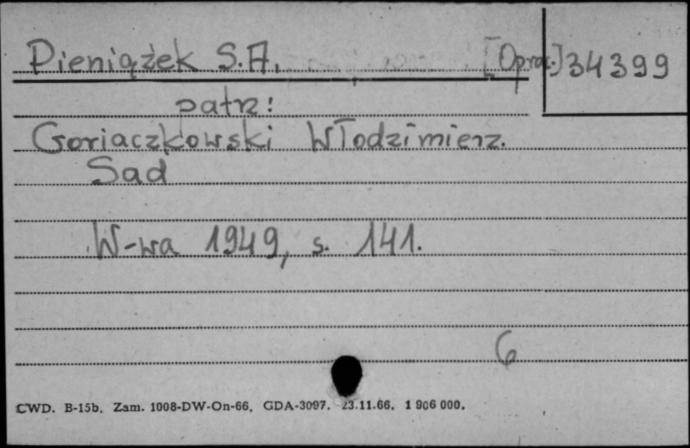 Pieniążek S.A. [Oprac.] 34399
patrz:
Goriaczkowski Włodzimierz.
Sad
W-wa 1949, s. 141.
6
CWD. B-15b. Zam. 1008-DW-On-66. GDA-3097. 23.11.66. 1 906 000.